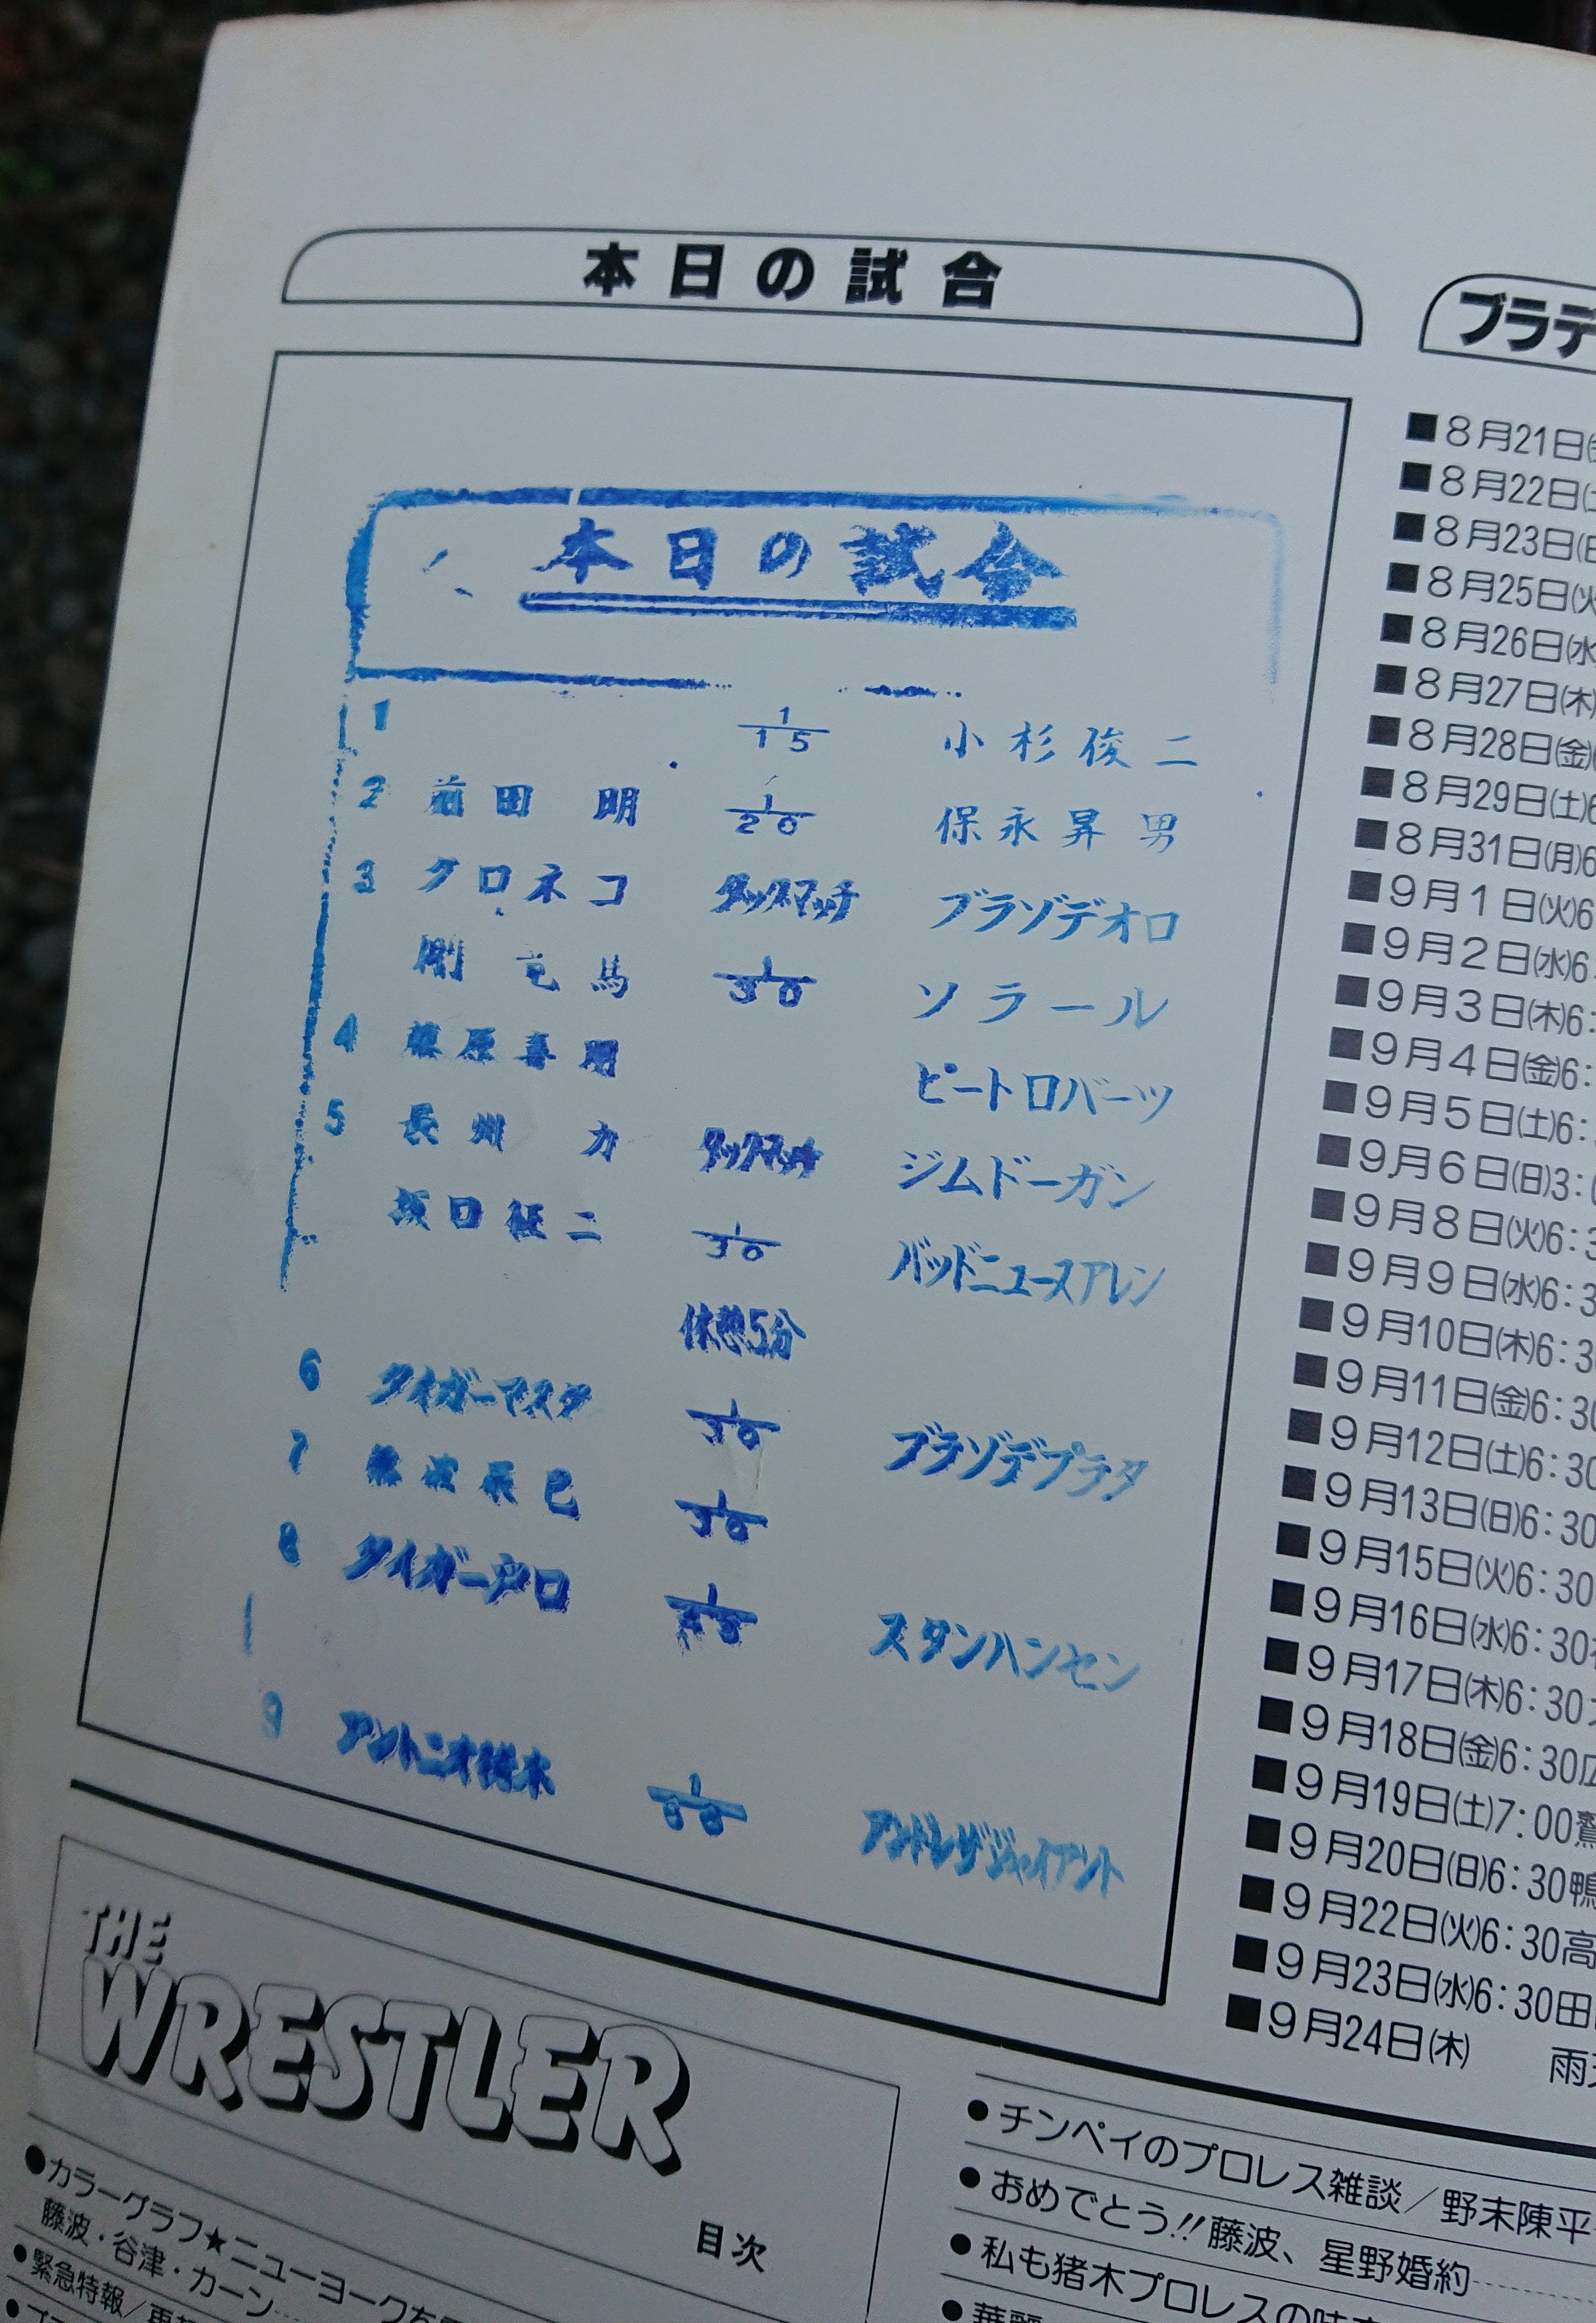 本日の試合
本日の試合
1 1/15 小杉俊二
2 前田 明 1/20 保永昇男
3 クロネコ タッグマッチ ブラソデオロ
剛 竜馬 1/30 ソラール
4 藤原喜明 ピートロバーツ
5 長州 力 タッグマッチ ジムドーガン
坂口征二 1/30 バッドニュースアレン
休憩5分
6 タイガーマスク 1/30 ブラソデプラタ
7 藤波辰巳 1/30
8 タイガー戸口 スタンハンセン
9 アントニオ猪木 1/60 アンドレザジャイアント
ブラデ
■8月21日
■8月22日
■8月23日
■8月25日(火
■8月26日(水
■8月27日(木)
■8月28日(金)
■8月29日(土)6
■8月31日(月)6
■9月1日(火)6
■9月2日(水)6:
■9月3日(木)6:
■9月4日(金)6:
■9月5日(土)6:
■9月6日(日)3:
■9月8日(火)6:3
■9月9日(水)6:3
■9月10日(木)6:3
■9月11日(金)6:30
■9月12日(土)6:30
■9月13日(日)6:30
■9月15日(火)6:30
■9月16日(水)6:30
■9月17日(木)6:30
■9月18日(金)6:30広
■9月19日(土)7:00鷲
■9月20日(日)6:30鴨
■9月22日(火)6:30高
■9月23日(水)6:30田
■9月24日(木) 雨天
THE
WRESTLER
目次
●カラーグラフ★ニューヨークを
藤波・谷津・カーン
●緊急特報/再
●チンペイのプロレス雑談/野末陳平
●おめでとう!!藤波、星野婚約
●私も猪木プロレスの味
●華麗